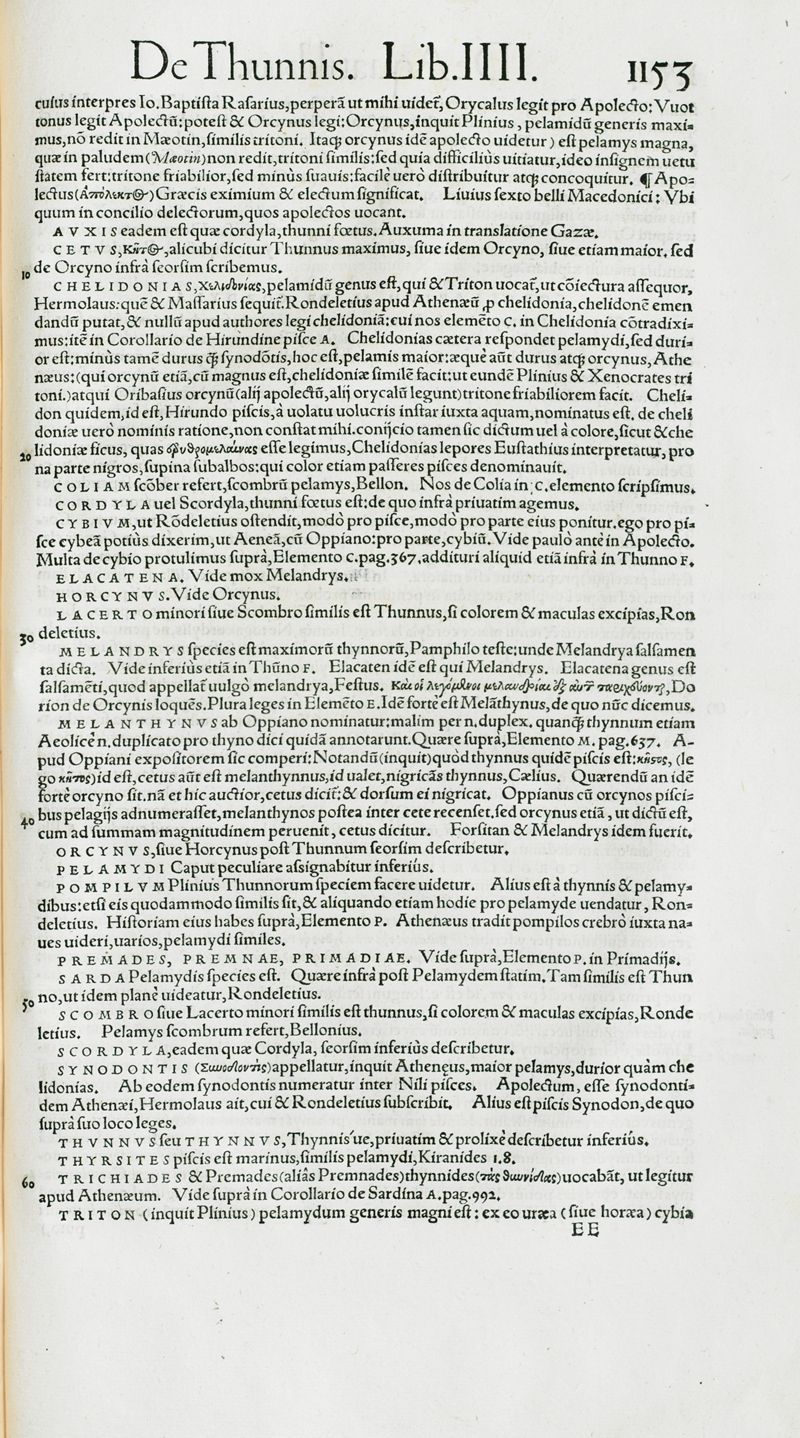 De Thunnis. Lib.IIII. 1153
cuius interpres Io. Baptista Rasarius, perperā ut mihi uidet̃, Orycalus legit pro Apolecto: Vuot
tonus legit Apolectū: potest & Orcynus legi: Orcynus, inquit Plinius, pelamidū generis maxi-
mus, nō redit in Mæotin, similis tritoni. Itaq; orcynus idē apolecto uidetur) est pelamys magna,
quæ in paludem (Mæotin) non redit, tritoni similis: sed quia difficilius uitiatur, ideo insignem uetu
statem fert: tritone friabilior, sed minùs suauis: facilè uerò distribuitur atq; concoquitur. ¶ Apo-
lectus (Ἀπόλεκτος) Græcis eximium & electum significat. Liuius sexto belli Macedonici: Vbi
quum in concilio delectorum, quos apolectos uocant.
AVXIS eadem est quæ cordyla, thunni fœtus. Auxuma in translatione Gazæ.
CETVS, Κῆτος, alicubi dicitur Thunnus maximus, siue idem Orcyno, siue etiam maior. sed
10 de Orcyno infrà seorsim scribemus.
CHELIDONIAS, Χελιδονίας, pelamidū genus est, qui & Triton uocat̃, ut cōiectura assequor,
Hermolaus: quē & Massarius sequit̃. Rondeletius apud Athenæū, ꝓ chelidonia, chelidonē emen
dandū putat, & nullū apud authores legi chelidoniā: cui nos elemēto C. in Chelidonia cōtradixi-
mus: itē in Corollario de Hirundine pisce A. Chelidonias cætera respondet pelamydi, sed duri-
or est: minùs tamē durus q̃ synodōtis, hoc est, pelamis maior: æquè aūt durus atq; orcynus, Athe
næus: (qui orcynū etiā, cū magnus est, chelidoniæ similē facit: ut eundē Plinius & Xenocrates tri
toni.) atqui Oribasius orcynū (alij apolectū, alij orycalū legunt) tritone friabiliorem facit. Cheli-
don quidem, id est, Hirundo piscis, à uolatu uolucris instar iuxta aquam, nominatus est. de cheli
doniæ uerò nominis ratione, non constat mihi. conijcio tamen sic dictum uel à colore, sicut & che
20 lidoniæ ficus, quas ἐρυθρομελαίνας esse legimus, Chelidonias lepores Eustathius interpretatur, pro
na parte nigros, supina subalbos: qui color etiam passeres pisces denominauit.
COLIAM scōber refert, scombrū pelamys, Bellon. Nos de Colia in C. elemento scripsimus.
CORDYLA uel Scordyla, thunni fœtus est: de quo infrà priuatim agemus.
CYBIVM, ut Rōdeletius ostendit, modò pro pisce, modò pro parte eius ponitur. ego pro pi-
sce cybeā potiùs dixerim, ut Aeneā, cū Oppiano: pro parte, cybiū. Vide paulò antè in Apolecto.
Multa de cybio protulimus suprà, Elemento C. pag. 367. addituri aliquid etiā infrà in Thunno F.
ELACATENA. Vide mox Melandrys.
HORCYNVS. Vide Orcynus.
LACERTO minori siue Scombro similis est Thunnus, si colorem & maculas excipias, Ron
30 deletius.
MELANDRYS species est maximorū thynnorū, Pamphilo teste: unde Melandrya salsamen
ta dicta. Vide inferiùs etiā in Thūno F. Elacaten idē est qui Melandrys. Elacatena genus est
salsamēti, quod appellat̃ uulgò melandrya, Festus. Καὶ οἱ λεγόμενοι μελανδρύαι δὲ, Do
rion de Orcynis loquēs. Plura leges in Elemēto E. Idē fortè est Melāthynus, de quo nūc dicemus.
MELANTHYNVS ab Oppiano nominatur: malim per n. duplex. quanq̃ thynnum etiam
Aeolicè n. duplicato pro thyno dici quidā annotarunt. Quære suprà, Elemento M. pag. 637. A-
pud Oppiani expositorem sic comperi: Notandū (inquit) quòd thynnus quidē piscis est: κῆτος, (le
go κῆτος) id est, cetus aūt est melanthynnus, id ualet, nigricās thynnus, Cælius. Quærendū an idē
fortè orcyno sit. nā et hic auctior, cetus dicit̃: & dorsum ei nigricat. Oppianus cū orcynos pisci-
40 bus pelagijs adnumerasset, melanthynos postea inter cete recenset. sed orcynus etiā, ut dictū est,
cum ad summam magnitudinem peruenit, cetus dicitur. Forsitan & Melandrys idem fuerit.
ORCYNVS, siue Horcynus post Thunnum seorsim describetur.
PELAMYDI Caput peculiare assignabitur inferiùs.
POMPILVM Plinius Thunnorum speciem facere uidetur. Alius est à thynnis & pelamy-
dibus: etsi eis quodammodo similis sit, & aliquando etiam hodie pro pelamyde uendatur, Ron-
deletius. Historiam eius habes suprà, Elemento P. Athenæus tradit pompilos crebrò iuxta na-
ues uideri, uarios, pelamydi similes.
PREMADES, PREMNAE, PRIMADIAE. Vide suprà, Elemento P. in Primadijs.
SARDA Pelamydis species est. Quære infrà post Pelamydem statim. Tam similis est Thun
50 no, ut idem planè uideatur, Rondeletius.
SCOMBRO siue Lacerto minori similis est thunnus, si colorem & maculas excipias, Ronde
letius. Pelamys scombrum refert, Bellonius.
SCORDYLA, eadem quæ Cordyla, seorsim inferiùs describetur.
SYNODONTIS (Συνοδοντὶς) appellatur, inquit Athenęus, maior pelamys, durior quàm che
lidonias. Ab eodem synodontis numeratur inter Nili pisces. Apolectum, esse synodonti-
dem Athenæi, Hermolaus ait, cui & Rondeletius subscribit. Alius est piscis Synodon, de quo
suprà suo loco leges.
THVNNVS seu THYNNVS, Thynnis ue, priuatim & prolixè describetur inferiùs.
THYRSITES piscis est marinus, similis pelamydi, Kiranides 1.8.
60 TRICHIADES & Premades (aliâs Premnades) thynnides (τὰς θυννίδας) uocabāt, ut legitur
apud Athenæum. Vide suprà in Corollario de Sardina A. pag. 992.
TRITON (inquit Plinius) pelamydum generis magni est: ex eo uræa (siue horæa) cybia
EE